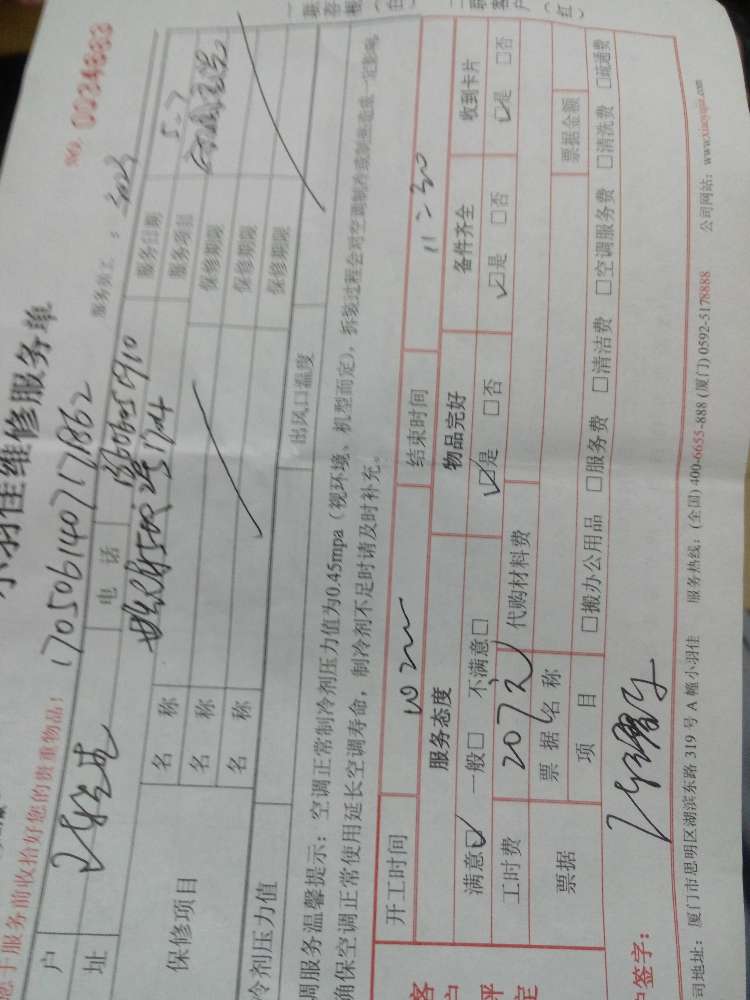 小羽佳维修服务单
NO. 0034883
您于服务前收拾好您的贵重物品!
1705061407171862
服务员工
户
电 话
服务日期
5.7
址
服务项目
保修项目
名 称
保修期限
名 称
保修期限
名 称
保修期限
冷剂压力值
出风口温度
调服务温馨提示：空调正常制冷剂压力值为0.45mpa（视环境、机型而定），拆装过程会对空调制冷或制热造成一定影响,
确保空调正常使用延长空调寿命，制冷剂不足时请及时补充。
开工时间
结束时间 11:30
客户评定
服务态度 物品完好 备件齐全 收到卡片
满意☑ 一般□ 不满意□ ☑是 □否 ☑是 □否 ☑是 □否
工时费 207元 代购材料费
票据 票据名称 票据金额
项 目 □搬办公用品 □服务费 □清洁费 □空调服务费 □清洗费 □疏通费
户签字:
司地址: 厦门市思明区湖滨东路 319 号 A 幢小羽佳 服务热线: (全国) 400-6655-888 (厦门) 0592-5178888 公司网站: www.xiaoyujia.com